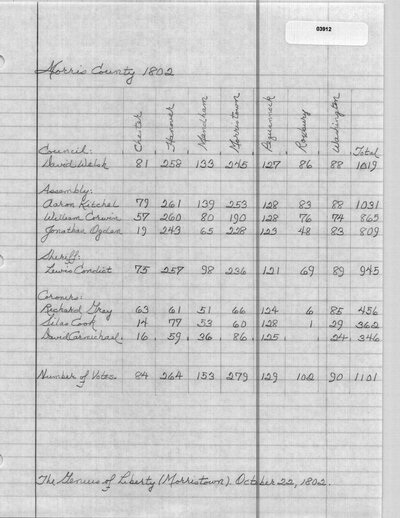 03912
Morris County 1802
Chester Hanover Mendham Morristown Pequannock Roxbury Washington Total
Council:
David Welsh 81 258 133 246 127 86 88 1019
Assembly:
Aaron Kitchel 79 261 139 253 128 83 88 1031
William Corwin 57 260 80 190 128 76 74 865
Jonathan Ogden 19 243 65 228 123 48 83 809
Sheriff:
Lewis Condict 75 257 98 236 121 69 89 945
Coroners:
Richard Gray 63 61 51 66 124 6 85 456
Silas Cook 14 77 53 60 128 1 29 362
David Carmichael. 16 59 36 86 125 24 346
Number of Votes. 84 264 153 279 129 102 90 1101
The Genius of Liberty (Morristown). October 22, 1802.